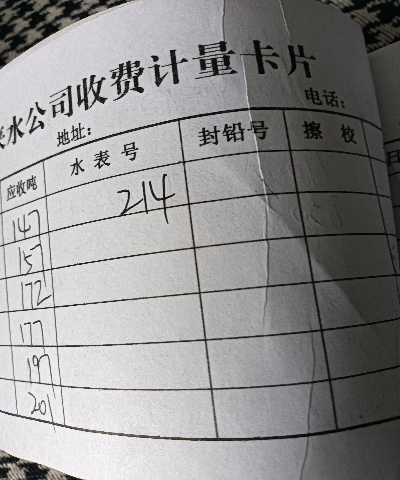 水公司收费计量卡片
地址: 电话:
应收吨 水表号 封铅号 擦校
147 214
157
172
177
197
201